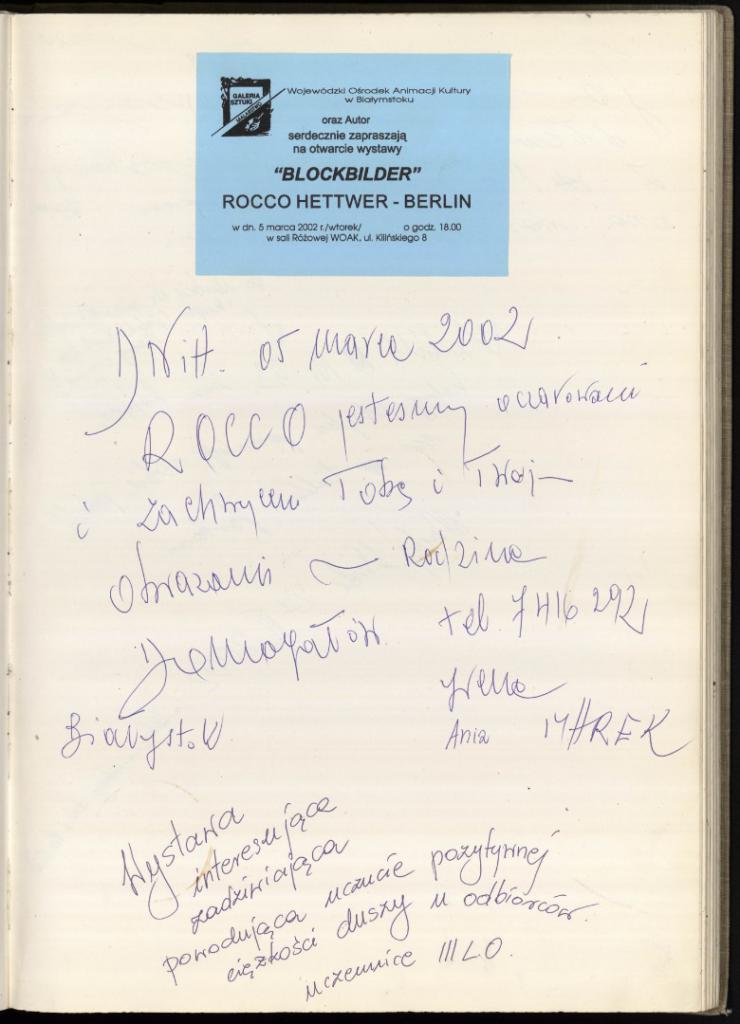 GALERIA
SZTUKI
Wojewódzki Ośrodek Animacji Kultury
w Białymstoku
oraz Autor
serdecznie zapraszają
na otwarcie wystawy
"BLOCKBILDER"
ROCCO HETTWER - BERLIN
w dn. 5 marca 2002 r./wtorek/ o godz. 18.00
w sali Różowej WOAK, ul. Kilińskiego 8
05 marca 2002
ROCCO jesteśmy oczarowani
i zachwyceni Tobą i Twoj-
Obrazami ~ Rodzina
tel. 7416 292
Irena
Białystok Ania MAREK
Wystawa
interesująca
zadziwiająca
powodująca uczucie pozytywnej
ciężkości duszy u odbiorców.
uczennice III LO.